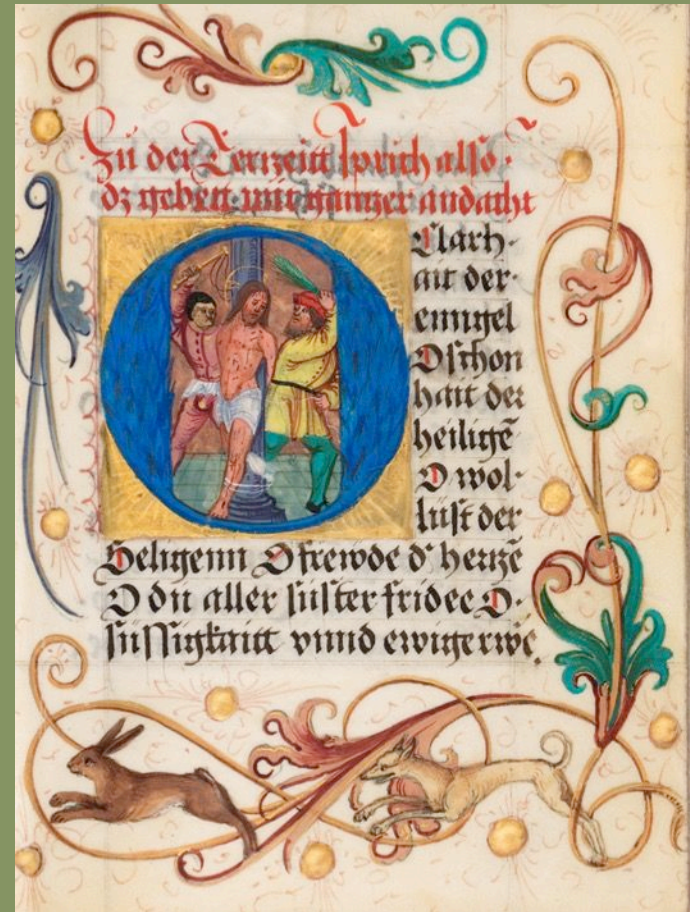 Zu der Tertzeitt sprich also ·
dz gebett mit gantzer andacht
O Clarh-
ait der
enngel
O schon
hait der
heiligē
O wol-
lust der
Seligenn O frewde d' hertzē
O du aller süster fride O
süssigkaitt vnnd ewige rwe.